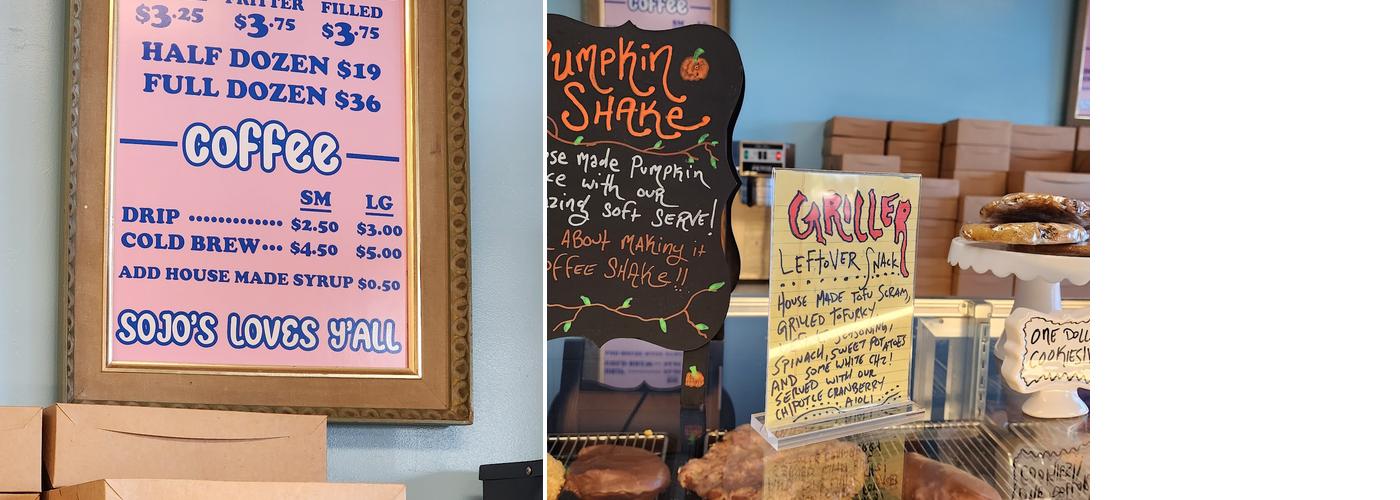 FRITTER FILLED
$3.25 $3.75 $3.75
HALF DOZEN $19
FULL DOZEN $36
COFFEE
SM LG
DRIP .............. $2.50 $3.00
COLD BREW... $4.50 $5.00
ADD HOUSE MADE SYRUP $0.50
SOJO'S LOVES Y'ALL
coffee
SM
umpkin
SHAKe
se made Pumpkin
ce with our
zing Soft SERVE!
ABout MAKing it
OFFEE SHAKe!!
GRILLER
LEFTOVER SNACK
HOUSE MADE TOFU SCRAM,
GRILLED TOFURKY,
SEASONING,
SPINACH, SWEET POTATOES
AND SOME WHITE CHZ!
SERVED WITH OUR
CHIPOTLE CRANBERRY
AIOLI
ONE DOLL
COOKIES!